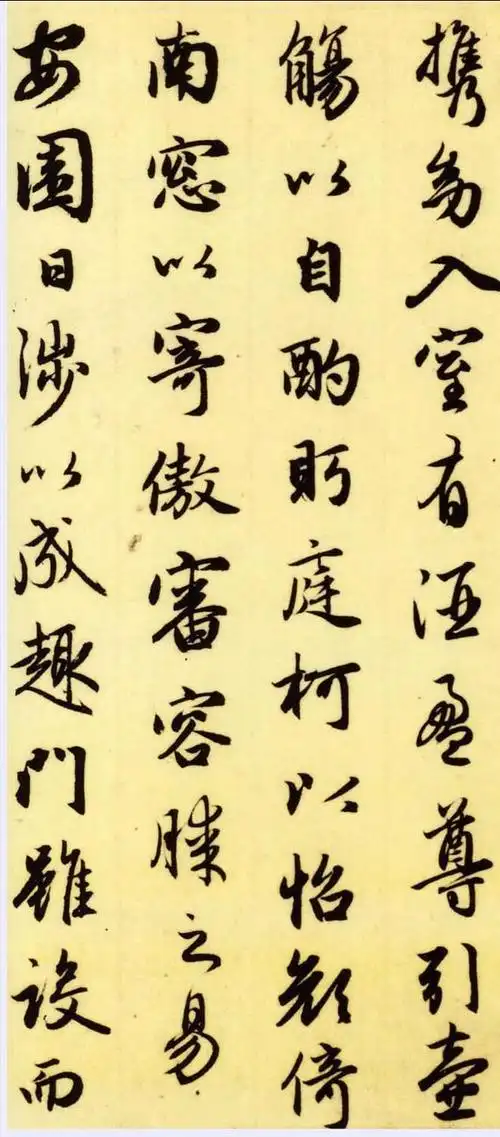 携幼入室有酒盈尊引壺
觴以自酌眄庭柯以怡顏倚
南窓以寄傲審容膝之易
安園日涉以成趣門雖設而